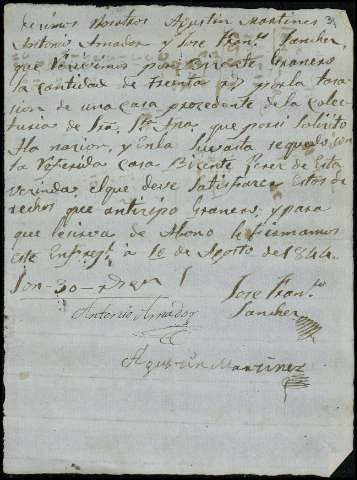 Decimos Nosotros Agustin Martines
Antonio Amador y Jose Fran.co Sanches
que recivimos por Bisente Granero
la cantidad de trenta rs por la tasa
sion de una casa procedente de la colec
turia de Sta Ana, que por si solisito
Ala nacion, y en la suvasta requalo con
la referida casa Bisente Perez de esta
vecinda, el que deve satisfacer estos de
rechos que antisipo Granero, y para
que le sirva de Abono le firmamos
este en a 12 de Agosto del 844.
Son - 30 - rs vn
Jose Fran.co
Antonio Amador Sanches
Agustin Martinez